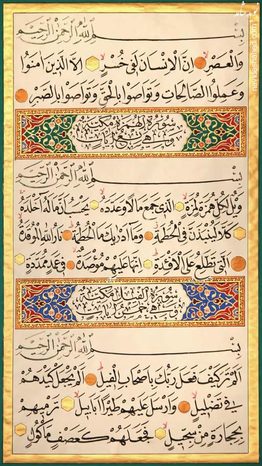 بِسْمِ اللَّهِ الرَّحْمَٰنِ الرَّحِيمِ
وَالْعَصْرِ إِنَّ الْإِنْسَانَ لَفِي خُسْرٍ إِلَّا الَّذِينَ آمَنُوا
وَعَمِلُوا الصَّالِحَاتِ وَتَوَاصَوْا بِالْحَقِّ وَتَوَاصَوْا بِالصَّبْرِ
سُورَةُ الْهُمَزَةِ مَكِّيَّةٌ
وَهِيَ تِسْعُ آيَاتٍ
بِسْمِ اللَّهِ الرَّحْمَٰنِ الرَّحِيمِ
وَيْلٌ لِكُلِّ هُمَزَةٍ لُمَزَةٍ الَّذِي جَمَعَ مَالًا وَعَدَّدَهُ يَحْسَبُ أَنَّ مَالَهُ أَخْلَدَهُ
كَلَّا لَيُنْبَذَنَّ فِي الْحُطَمَةِ وَمَا أَدْرَاكَ مَا الْحُطَمَةُ نَارُ اللَّهِ الْمُوقَدَةُ
الَّتِي تَطَّلِعُ عَلَى الْأَفْئِدَةِ إِنَّهَا عَلَيْهِمْ مُؤْصَدَةٌ فِي عَمَدٍ مُمَدَّدَةٍ
سُورَةُ الْفِيلِ مَكِّيَّةٌ
وَهِيَ خَمْسُ آيَاتٍ
بِسْمِ اللَّهِ الرَّحْمَٰنِ الرَّحِيمِ
أَلَمْ تَرَ كَيْفَ فَعَلَ رَبُّكَ بِأَصْحَابِ الْفِيلِ أَلَمْ يَجْعَلْ كَيْدَهُمْ
فِي تَضْلِيلٍ وَأَرْسَلَ عَلَيْهِمْ طَيْرًا أَبَابِيلَ تَرْمِيهِمْ
بِحِجَارَةٍ مِنْ سِجِّيلٍ فَجَعَلَهُمْ كَعَصْفٍ مَأْكُولٍ